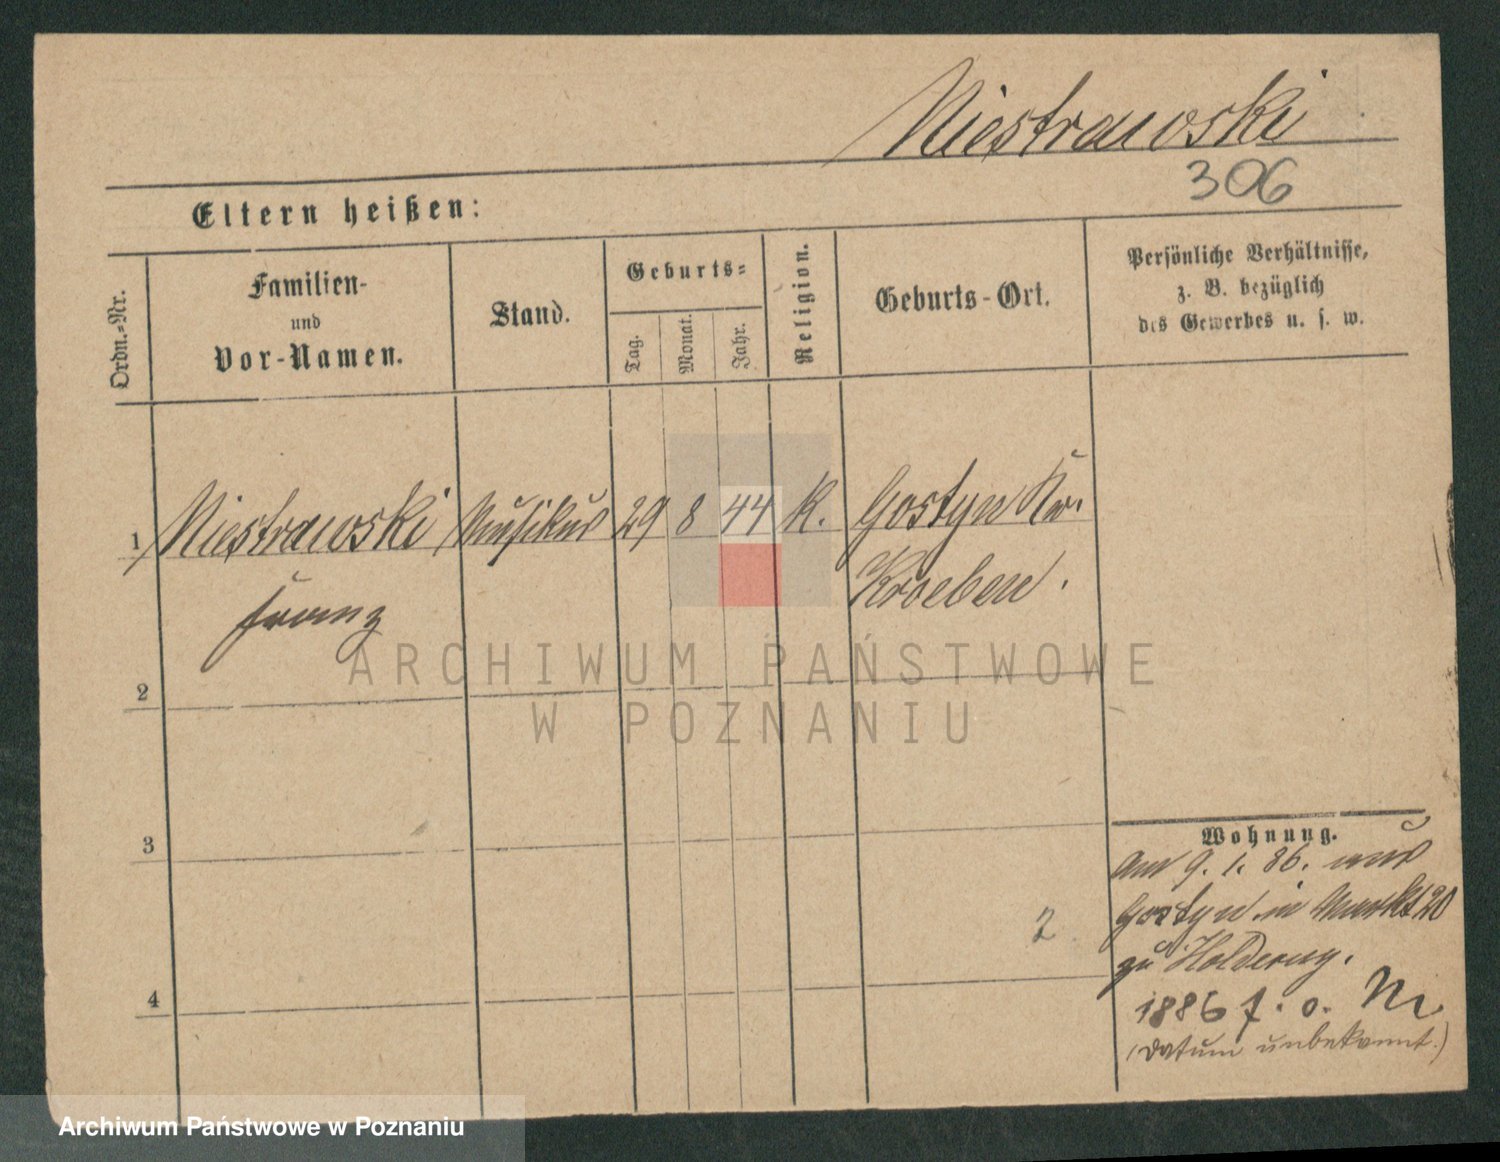 Niestrawski
306
Eltern heißen:
Ordn.-Nr.
Familien-
und
Vor-Namen.
Stand.
Geburts-
Tag.
Monat.
Jahr.
Religion.
Geburts-Ort.
Persönliche Verhältnisse,
z. B. bezüglich
des Gewerbes u. s. w.
1 Niestrawski Musikus 29 8 44 K. Gostyn Kr.
Franz Kroeben.
ARCHIWUM PAŃSTWOWE
W POZNANIU
2
3
Wohnung.
Am 9. 1. 86. aus
2 Gostyn in Markt 20
zu
4
1886 f. o. Nr
(Datum unbekannt.)
Archiwum Państwowe w Poznaniu